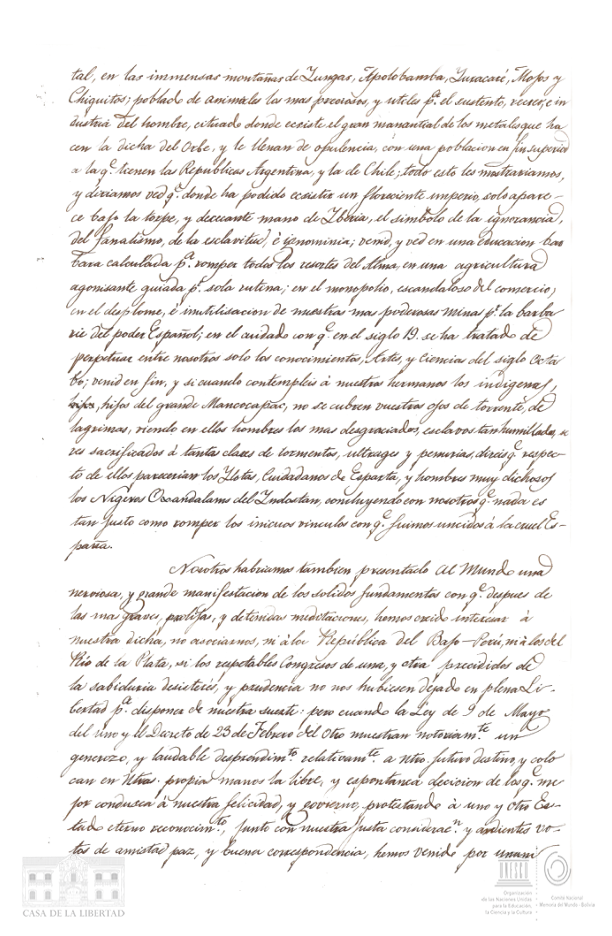 tal, en las immensas montañas de Yungas, Apolobamba, Yuracaré, Mojos y
Chiquitos; poblado de animales los mas preciosos, y utiles pª. el sustento, recreo, e in
dustria del hombre, cituado donde ecsiste el gran manantial de los metales que ha
cen la dicha del Orbe, y le llenan de opulencia, con una poblacion en fin superior
a la q.e tienen las Republicas Argentina, y la de Chile; todo esto les mostrariamos,
y diriamos ved q.e donde ha podido ecsistir un floreciente imperio, solo apare-
ce bajo la torpe, y dececante mano de Yberia, el simbolo de la ignorancia,
del fanatismo, de la esclavitud, é ignominia; venid, y ved en una educacion bar
bara calculada pª. romper todos los resortes del Alma, en una agricultura
agonisante guiada pr. sola rutina; en el monopolio, escandaloso del comercio;
en el desplome, é inutilisacion de nuestras mas poderosas minas pr. la barba
rie del poder Español; en el cuidado con q.e en el siglo 19. se ha tratado de
perpetuar entre nosotros solo los conocimientos, Artes, y Ciencias del siglo Octa
bo; venid en fin, y si cuando contempleis á nuestros hermanos los indigenas
hijos, hijos del grande Mancocapac, no se cubren vuestros ojos de torrentes, de
lagrimas, viendo en ellos hombres los mas desgraciados, esclavos tan humillados, se
res sacrificados á tantas clases de tormentos, ultrages y penurias, direis q.e respec-
to de ellos parecerian los Ylotas, Ciudadanos de Esparta, y hombres muy dichosos
los Nigeros Ovandalams del Yndostan, concluyendo con nosotros q.e nada es
tan justo como romper los inicuos vinculos con q.e fuimos uncidos á la cruel Es-
paña.
Nosotros habriamos tambien presentado al Mundo una
nerviosa, y grande manifestacion de los solidos fundamentos con q.e despues de
las mas graves, prolijas, y detenidas meditaciones, hemos creido interesar á
nuestra dicha, no asociarnos, ni á la República del Bajo-Perú, ni á la del
Rio de la Plata, si los respetables Congresos de una, y otra precididos de
la sabiduria desinterés, y prudencia no nos hubiesen dejado en plena Li-
bertad pª. disponer de nuestra suerte: pero cuando la Ley de 9 de Mayo
del uno y el Decreto de 23 de Febrero del otro muestran notoriam.te un
generozo, y laudable desprendim.to relativam.te a ntro. futuro destino, y colo
can en Ntras. propia manos la libre, y espontanea decicion de lo q.e me
jor condusca á nuestra felicidad, y govierno, protestando á uno y otro Es-
tado eterno reconocim.to, junto con nuestra justa considerac.n y ardientes vo-
tos de amistad paz, y buena correspondencia, hemos venido por unani
CASA DE LA LIBERTAD
UNESCO
Organización
de las Naciones Unidas
para la Educación,
la Ciencia y la Cultura
Comité Nacional
Memoria del Mundo - Bolivia